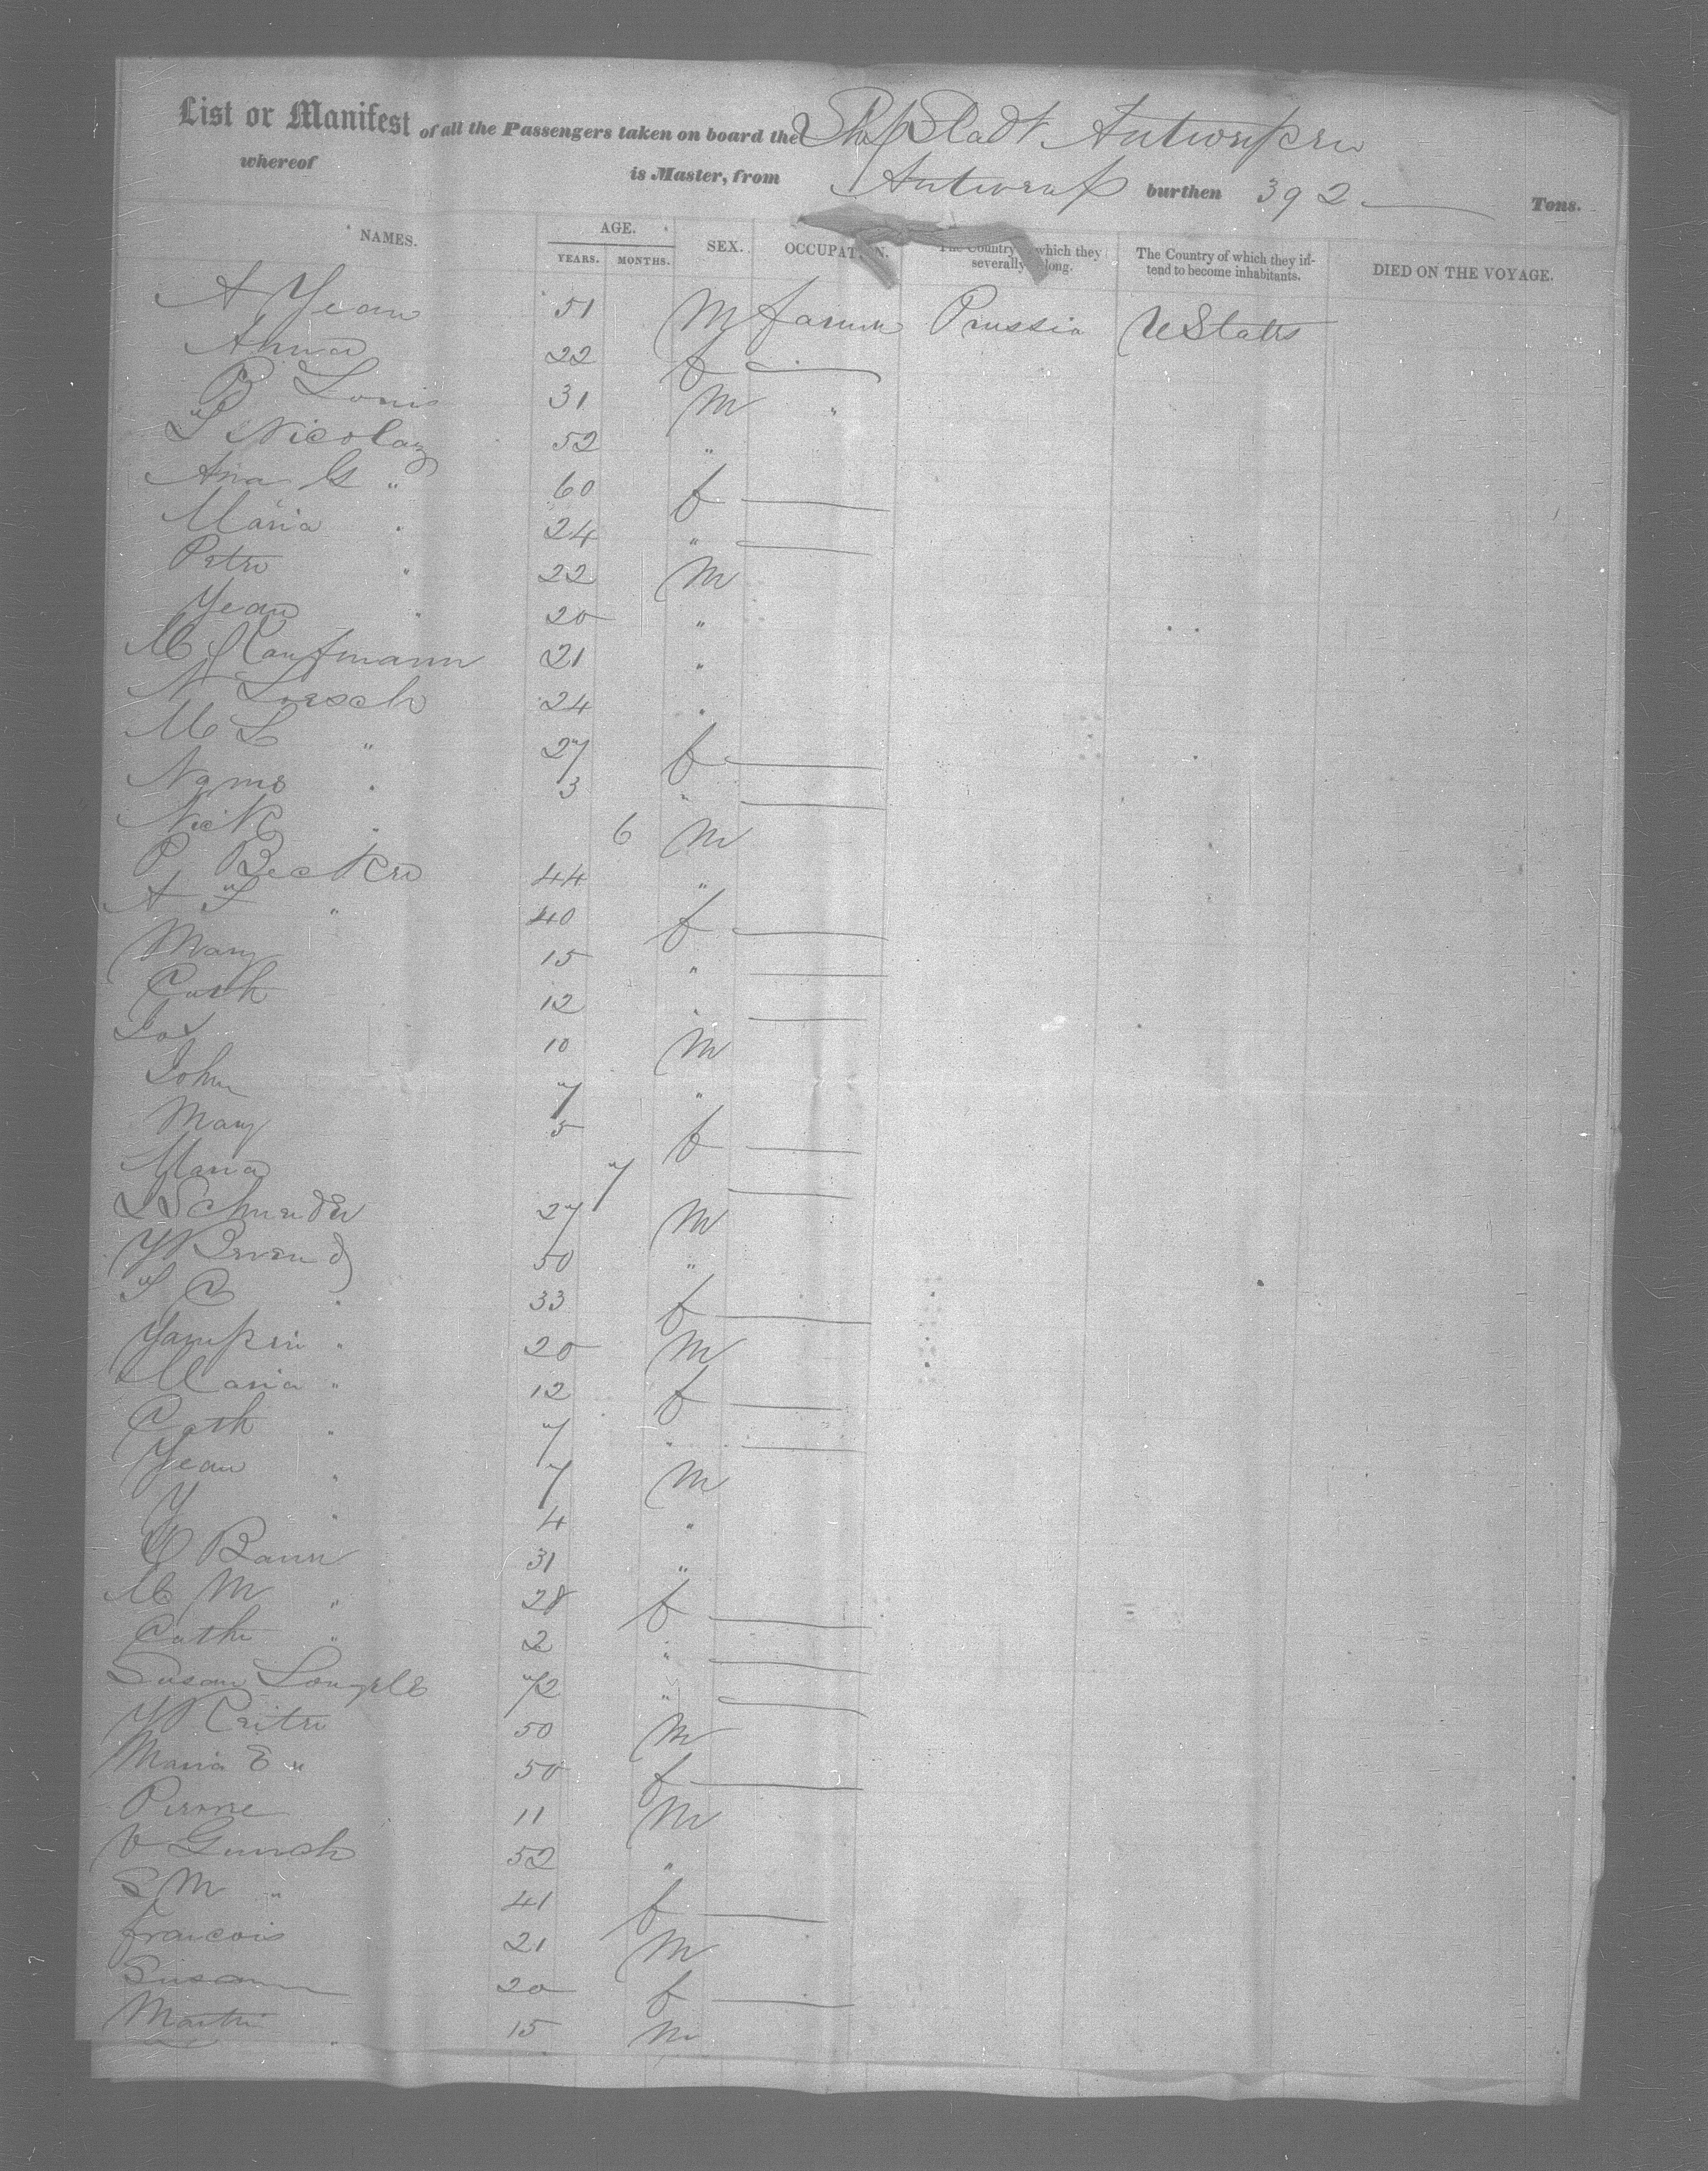 List or Manifest of all the Passengers taken on board the Ship Stadt Antwerpen
whereof is Master, from Antwerp burthen 392 Tons.
NAMES. AGE. YEARS. MONTHS. SEX. OCCUPATION. The Country which they severally long. The Country of which they intend to become inhabitants. DIED ON THE VOYAGE.
A Yean 51 M farmer Prussia U States
Anna 22 f
B Louis 31 M "
Nicolay 52 "
Ana G " 60 f
Maria " 24 "
Peter " 22 M
Yean " 20 "
M Kaufmann 21 "
N Loesch 24 "
M L " 27 f
3 "
Nick " 6 M
P Becker 44 "
A F " 40 f
Mary 15 "
Cath 12 "
10 M
John 7 "
Mary 5 f
Maria 7
L Schneider 27 M
50 "
33 f
20 M
Maria " 12 f
Cath " 7 "
Yean " 7 M
Y " 4 "
31 "
M M " 28 f
Cath " 2 "
Susan 72 "
50 M
Maria E " 50 f
Pierre 11 M
52 "
S M " 41 f
Francois 21 M
Susann 20 f
Martin 15 M